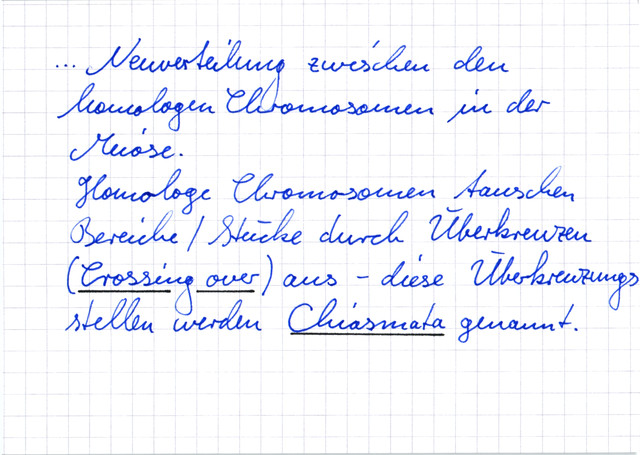 ... Neuverteilung zwischen den
homologen Chromosomen in der
Meiose.
Homologe Chromosomen tauschen
Bereiche/Stücke durch Überkreuzen
(Crossing over) aus - diese Überkreuzungs
stellen werden Chiasmata genannt.